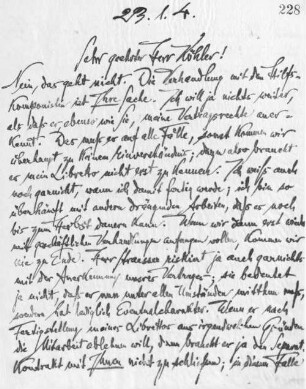 228
23.1.4.
Sehr geehrter Herr Köhler!
Nein, das geht nicht. Die Verhandlung mit den Hilfs-
komponisten ist Ihre Sache. Ich will ja nichts weiter,
als daß er ebenso wie Sie, meine Vertragsrechte aner-
kennt. Das muß er auf alle Fälle, sonst kommen wir
überhaupt zu keinem Einverständnis; dazu also braucht
er mein Libretto nicht erst zu kennen. Ich weiß auch
noch garnicht, wann ich damit fertig werde; ich bin so
überhäuft mit andern dringenden Arbeiten, daß es noch
bis zum Herbst dauern kann. Wenn wir dann erst wieder
mit geschäftlichen Verhandlungen anfangen wollen, kommen wir
nie zu Ende. Herr Straussen riskiert ja auch garnichts
mit der Anerkennung unseres Vertrages; sie bedeutet
ja nicht, daß er nun unter allen Umständen mitthun muß,
sondern hat lediglich Eventualcharakter. Wenn er nach
Fertigstellung meines Librettos aus irgendwelchen Gründen
die Mitarbeit ablehnen will, dann braucht er ja den Separat-
Kontrakt mit Ihnen nicht zu schließen; in diesem Falle